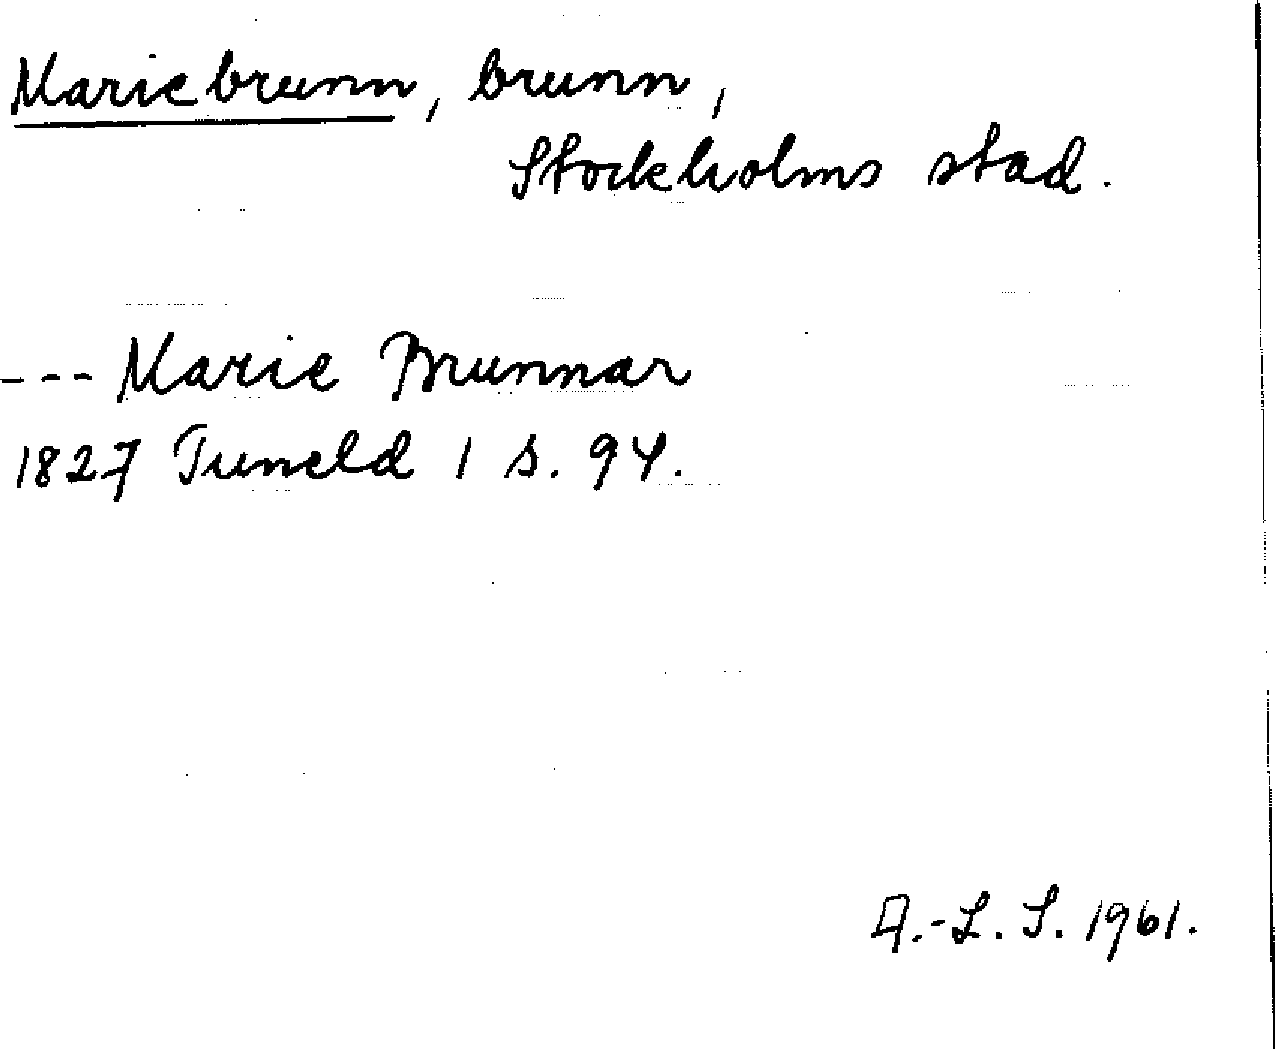 Mariebrunn, brunn,
Stockholms stad.
--- Marie Brunnar
1827 Tuneld 1 s. 94.
A.-L. S. 1961.